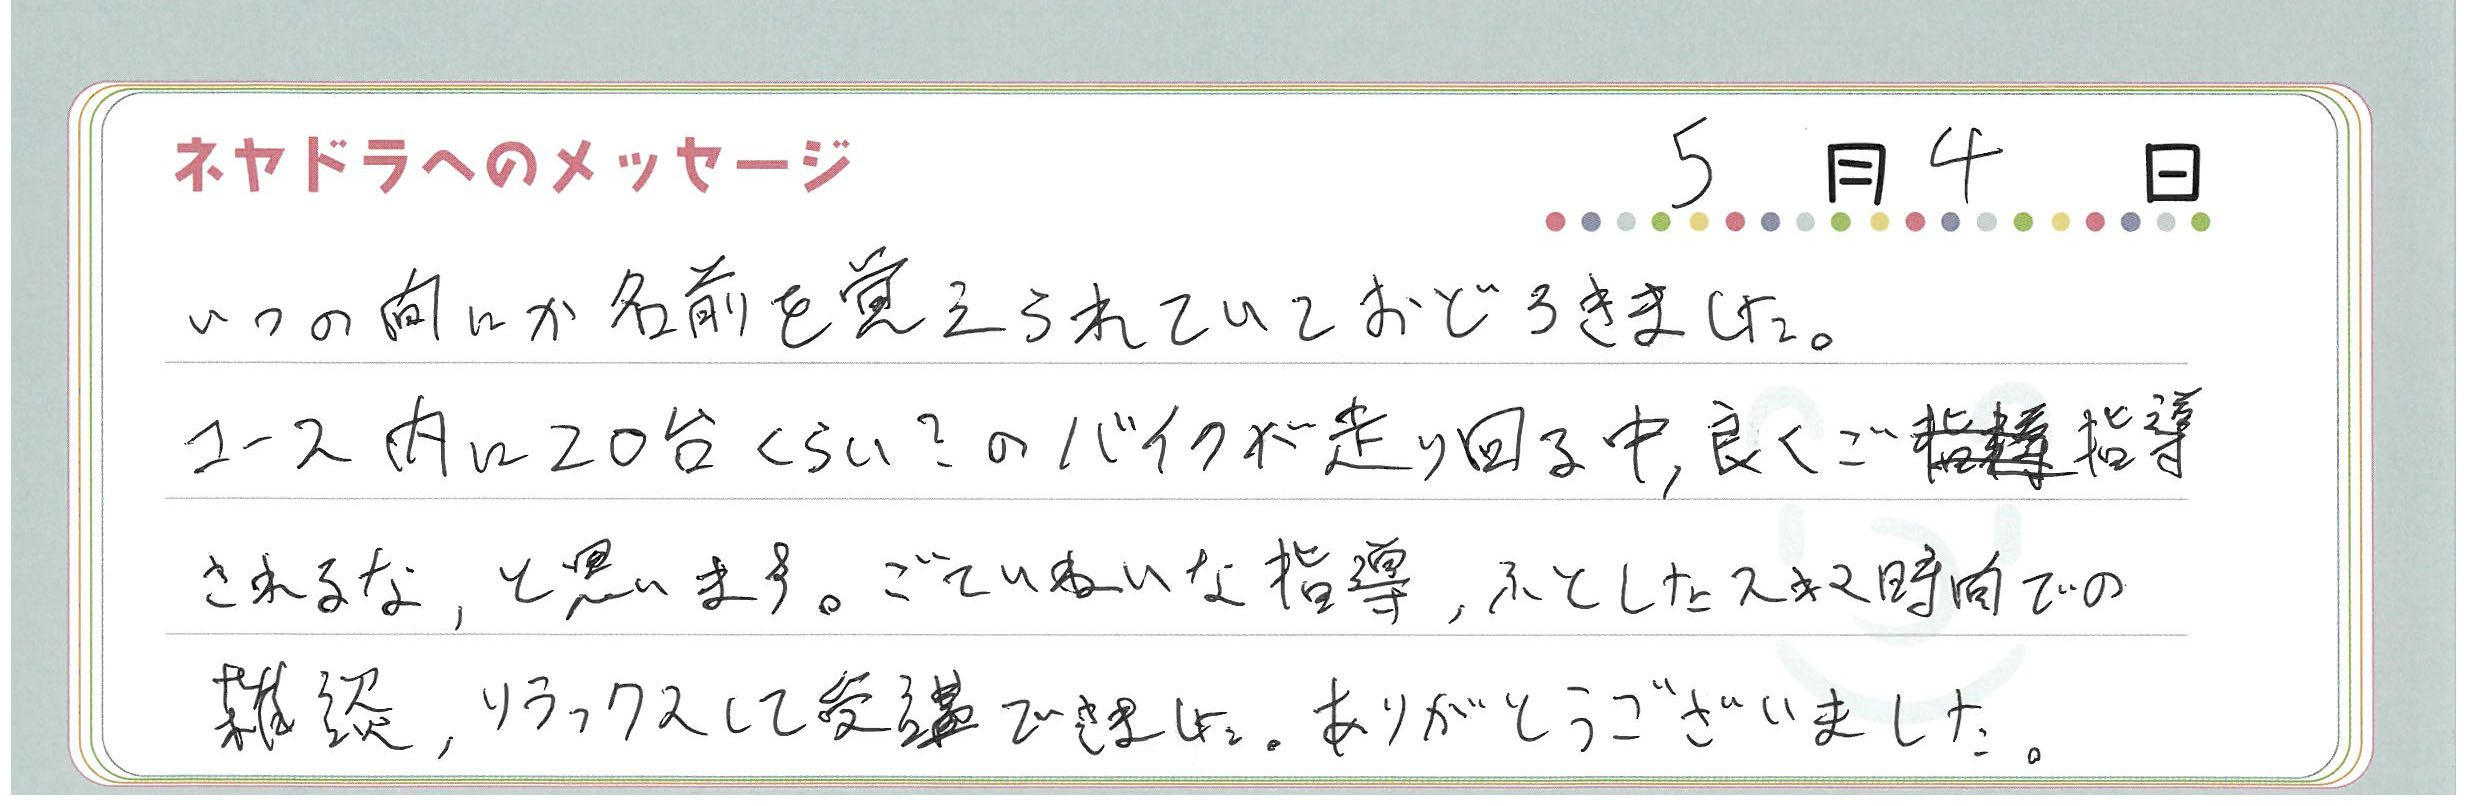 ネヤドラへのメッセージ
5月4日
いつの間にか名前を覚えられていておどろきました。
コース内に20台くらい?のバイクが走り回る中,良くご指導
されるな,と思います。ごていねいな指導,ふとしたスキマ時間での
雑談,リラックスして受講できました。ありがとうございました。